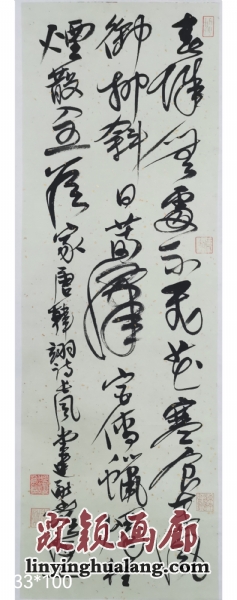 春城無處不飛花寒食東風
御柳斜日暮漢宮傳蠟燭輕
煙散入五侯家唐韓翃詩
33*100
霖颖画廊
linyinghualang.com